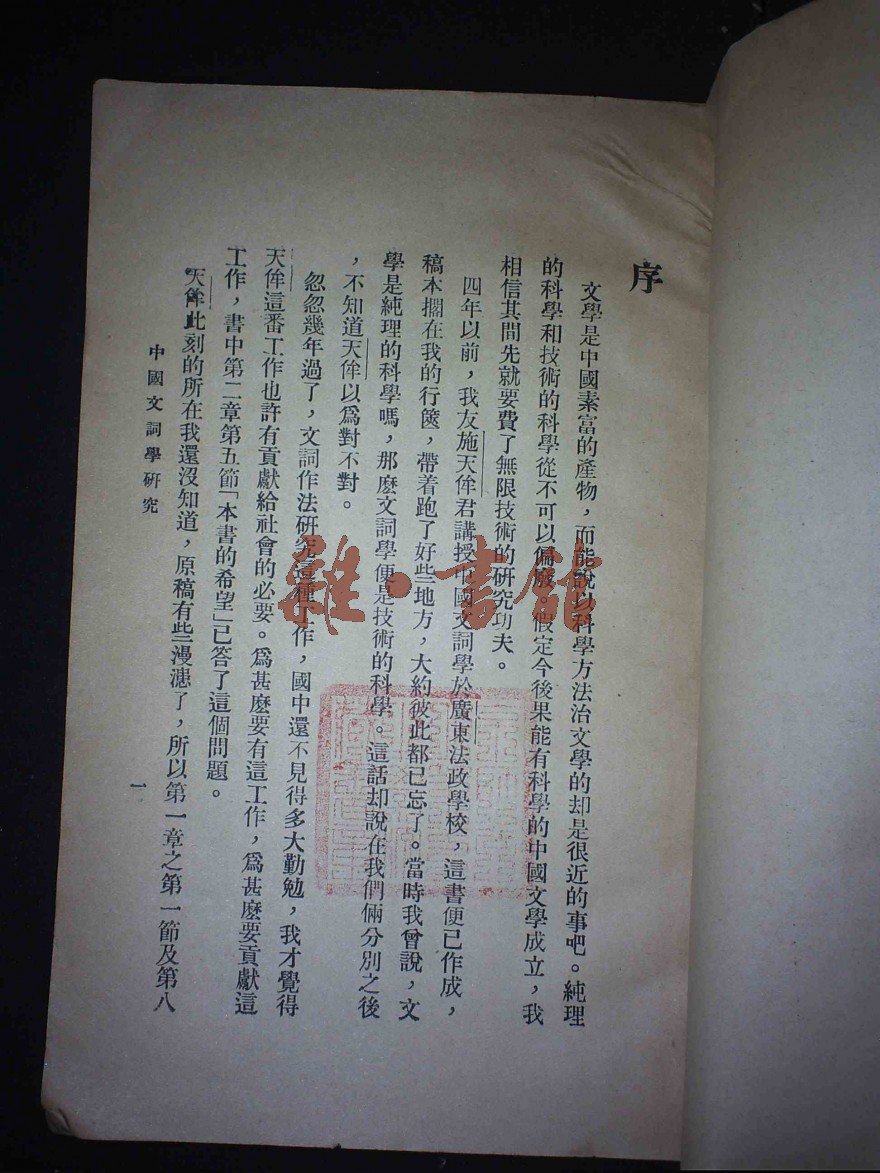 序
文學是中國素富的產物，而能說以科學方法治文學的却是很近的事吧。純理
的科學和技術的科學從不可以偏廢，假定今後果能有科學的中國文學成立，我
相信其間先就要費了無限技術的研究功夫。
四年以前，我友施天侔君講授中國文詞學於廣東法政學校，這書便已作成，
稿本擱在我的行篋，帶着跑了好些地方，大約彼此都已忘了。當時我曾說，文
學是純理的科學嗎，那麽文詞學便是技術的科學。這話却說在我們倆分別之後
，不知道天侔以爲對不對。
忽忽幾年過了，文詞作法研究這種工作，國中還不見得多大勤勉，我才覺得
天侔這番工作也許有貢獻給社會的必要。爲甚麽要有這工作，爲甚麽要貢獻這
工作，書中第二章第五節「本書的希望」已答了這個問題。
天侔此刻的所在我還沒知道，原稿有些漫漶了，所以第一章之第一節及第八
中國文詞學研究
一
雜·書館